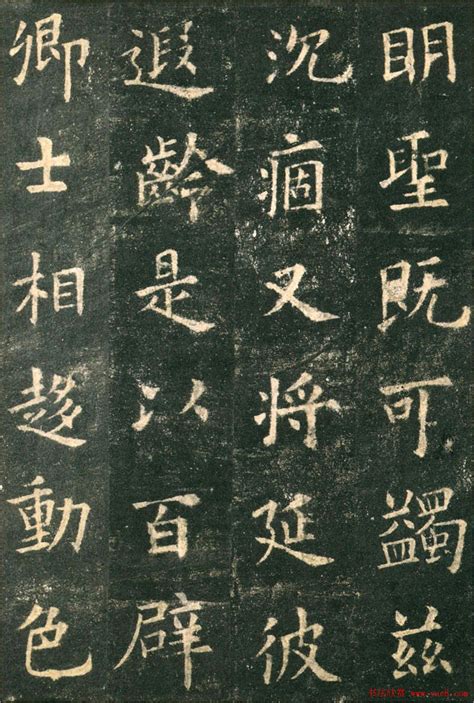 明聖既可蠲茲
沉痼又將延彼
遐齡是以百辟
卿士相趍動色